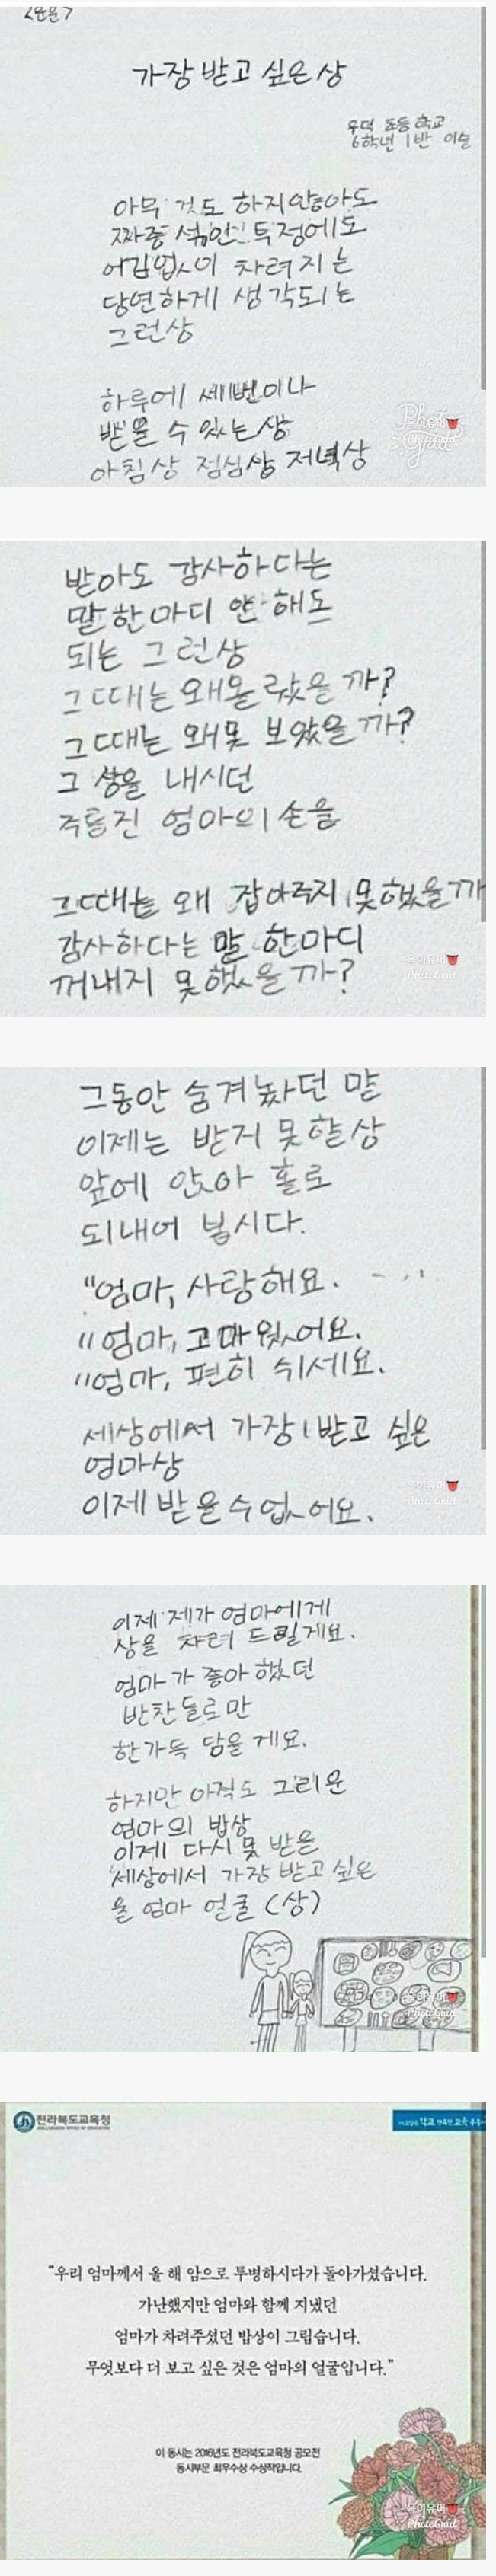 <운문>
가장 받고 싶은 상
우덕 초등 학교
6학년 1반 이슬
아무 것도 하지않아도
짜증 섞인 투정에도
어김없이 차려지는
당연하게 생각되는
그런상
하루에 세번이나
받을 수 있는상
아침상 점심상 저녁상
받아도 감사하다는
말 한마디 안해도
되는 그런상
그때는 왜몰랐을 까?
그때는 왜못 보았을 까?
그 상을 내시던
주름진 엄마의 손을
그때는 왜 잡아주지 못했을까
감사하다는 말 한마디
꺼내지 못했을까?
그동안 숨겨놨던 말
이제는 받지 못할상
앞에 앉아 홀로
되내어 봅시다.
"엄마, 사랑해요.
"엄마, 고마웠어요.
"엄마, 편히 쉬세요.
세상에서 가장 받고 싶은
엄마상
이제 받을수없어요.
이제 제가 엄마에게
상을 차려 드릴게요.
엄마가 좋아했던
반찬들로만
한가득 담을게요.
하지만 아직도 그리운
엄마의 밥상
이제 다시 못 받을
세상에서 가장 받고 싶은
울 엄마 얼굴 (상)
전라북도교육청
"우리 엄마께서 올 해 암으로 투병하시다가 돌아가셨습니다.
가난했지만 엄마와 함께 지냈던
엄마가 차려주셨던 밥상이 그립습니다.
무엇보다 더 보고 싶은 것은 엄마의 얼굴입니다."
이 동시는 2016년도 전라북도교육청 공모전
동시부문 최우수상 수상작입니다.
옥이유머
PhotoGrid